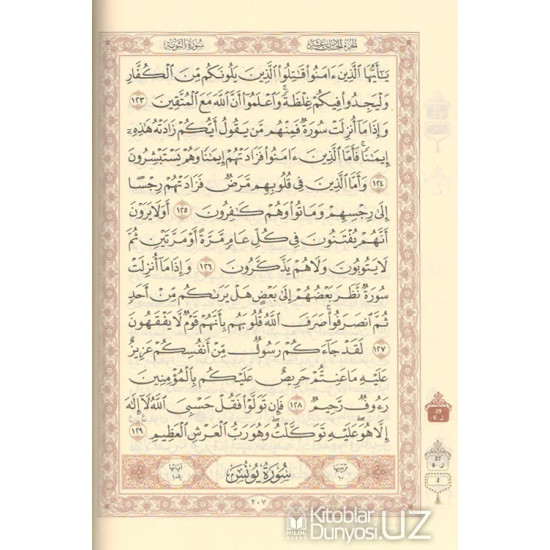 سورة التوبة
الجزء الحادي عشر
يَٰٓأَيُّهَا ٱلَّذِينَ ءَامَنُوا۟ قَٰتِلُوا۟ ٱلَّذِينَ يَلُونَكُم مِّنَ ٱلْكُفَّارِ
وَلْيَجِدُوا۟ فِيكُمْ غِلْظَةً ۚ وَٱعْلَمُوٓا۟ أَنَّ ٱللَّهَ مَعَ ٱلْمُتَّقِينَ ١٢٣
وَإِذَا مَآ أُنزِلَتْ سُورَةٌ فَمِنْهُم مَّن يَقُولُ أَيُّكُمْ زَادَتْهُ هَٰذِهِۦٓ
إِيمَٰنًا ۚ فَأَمَّا ٱلَّذِينَ ءَامَنُوا۟ فَزَادَتْهُمْ إِيمَٰنًا وَهُمْ يَسْتَبْشِرُونَ
١٢٤ وَأَمَّا ٱلَّذِينَ فِى قُلُوبِهِم مَّرَضٌ فَزَادَتْهُمْ رِجْسًا
إِلَىٰ رِجْسِهِمْ وَمَاتُوا۟ وَهُمْ كَٰفِرُونَ ١٢٥ أَوَلَا يَرَوْنَ
أَنَّهُمْ يُفْتَنُونَ فِى كُلِّ عَامٍ مَّرَّةً أَوْ مَرَّتَيْنِ ثُمَّ
لَا يَتُوبُونَ وَلَا هُمْ يَذَّكَّرُونَ ١٢٦ وَإِذَا مَآ أُنزِلَتْ
سُورَةٌ نَّظَرَ بَعْضُهُمْ إِلَىٰ بَعْضٍ هَلْ يَرَىٰكُم مِّنْ أَحَدٍ
ثُمَّ ٱنصَرَفُوا۟ ۚ صَرَفَ ٱللَّهُ قُلُوبَهُم بِأَنَّهُمْ قَوْمٌ لَّا يَفْقَهُونَ
١٢٧ لَقَدْ جَآءَكُمْ رَسُولٌ مِّنْ أَنفُسِكُمْ عَزِيزٌ
عَلَيْهِ مَا عَنِتُّمْ حَرِيصٌ عَلَيْكُم بِٱلْمُؤْمِنِينَ
رَءُوفٌ رَّحِيمٌ ١٢٨ فَإِن تَوَلَّوْا۟ فَقُلْ حَسْبِىَ ٱللَّهُ لَآ إِلَٰهَ
إِلَّا هُوَ ۖ عَلَيْهِ تَوَكَّلْتُ ۖ وَهُوَ رَبُّ ٱلْعَرْشِ ٱلْعَظِيمِ ١٢٩
ترتيبها ١٠
سُورَةُ يُونُسَ
آياتها ١٠٩
٢٠٧
HILOL
Kitoblar Dunyosi.UZ